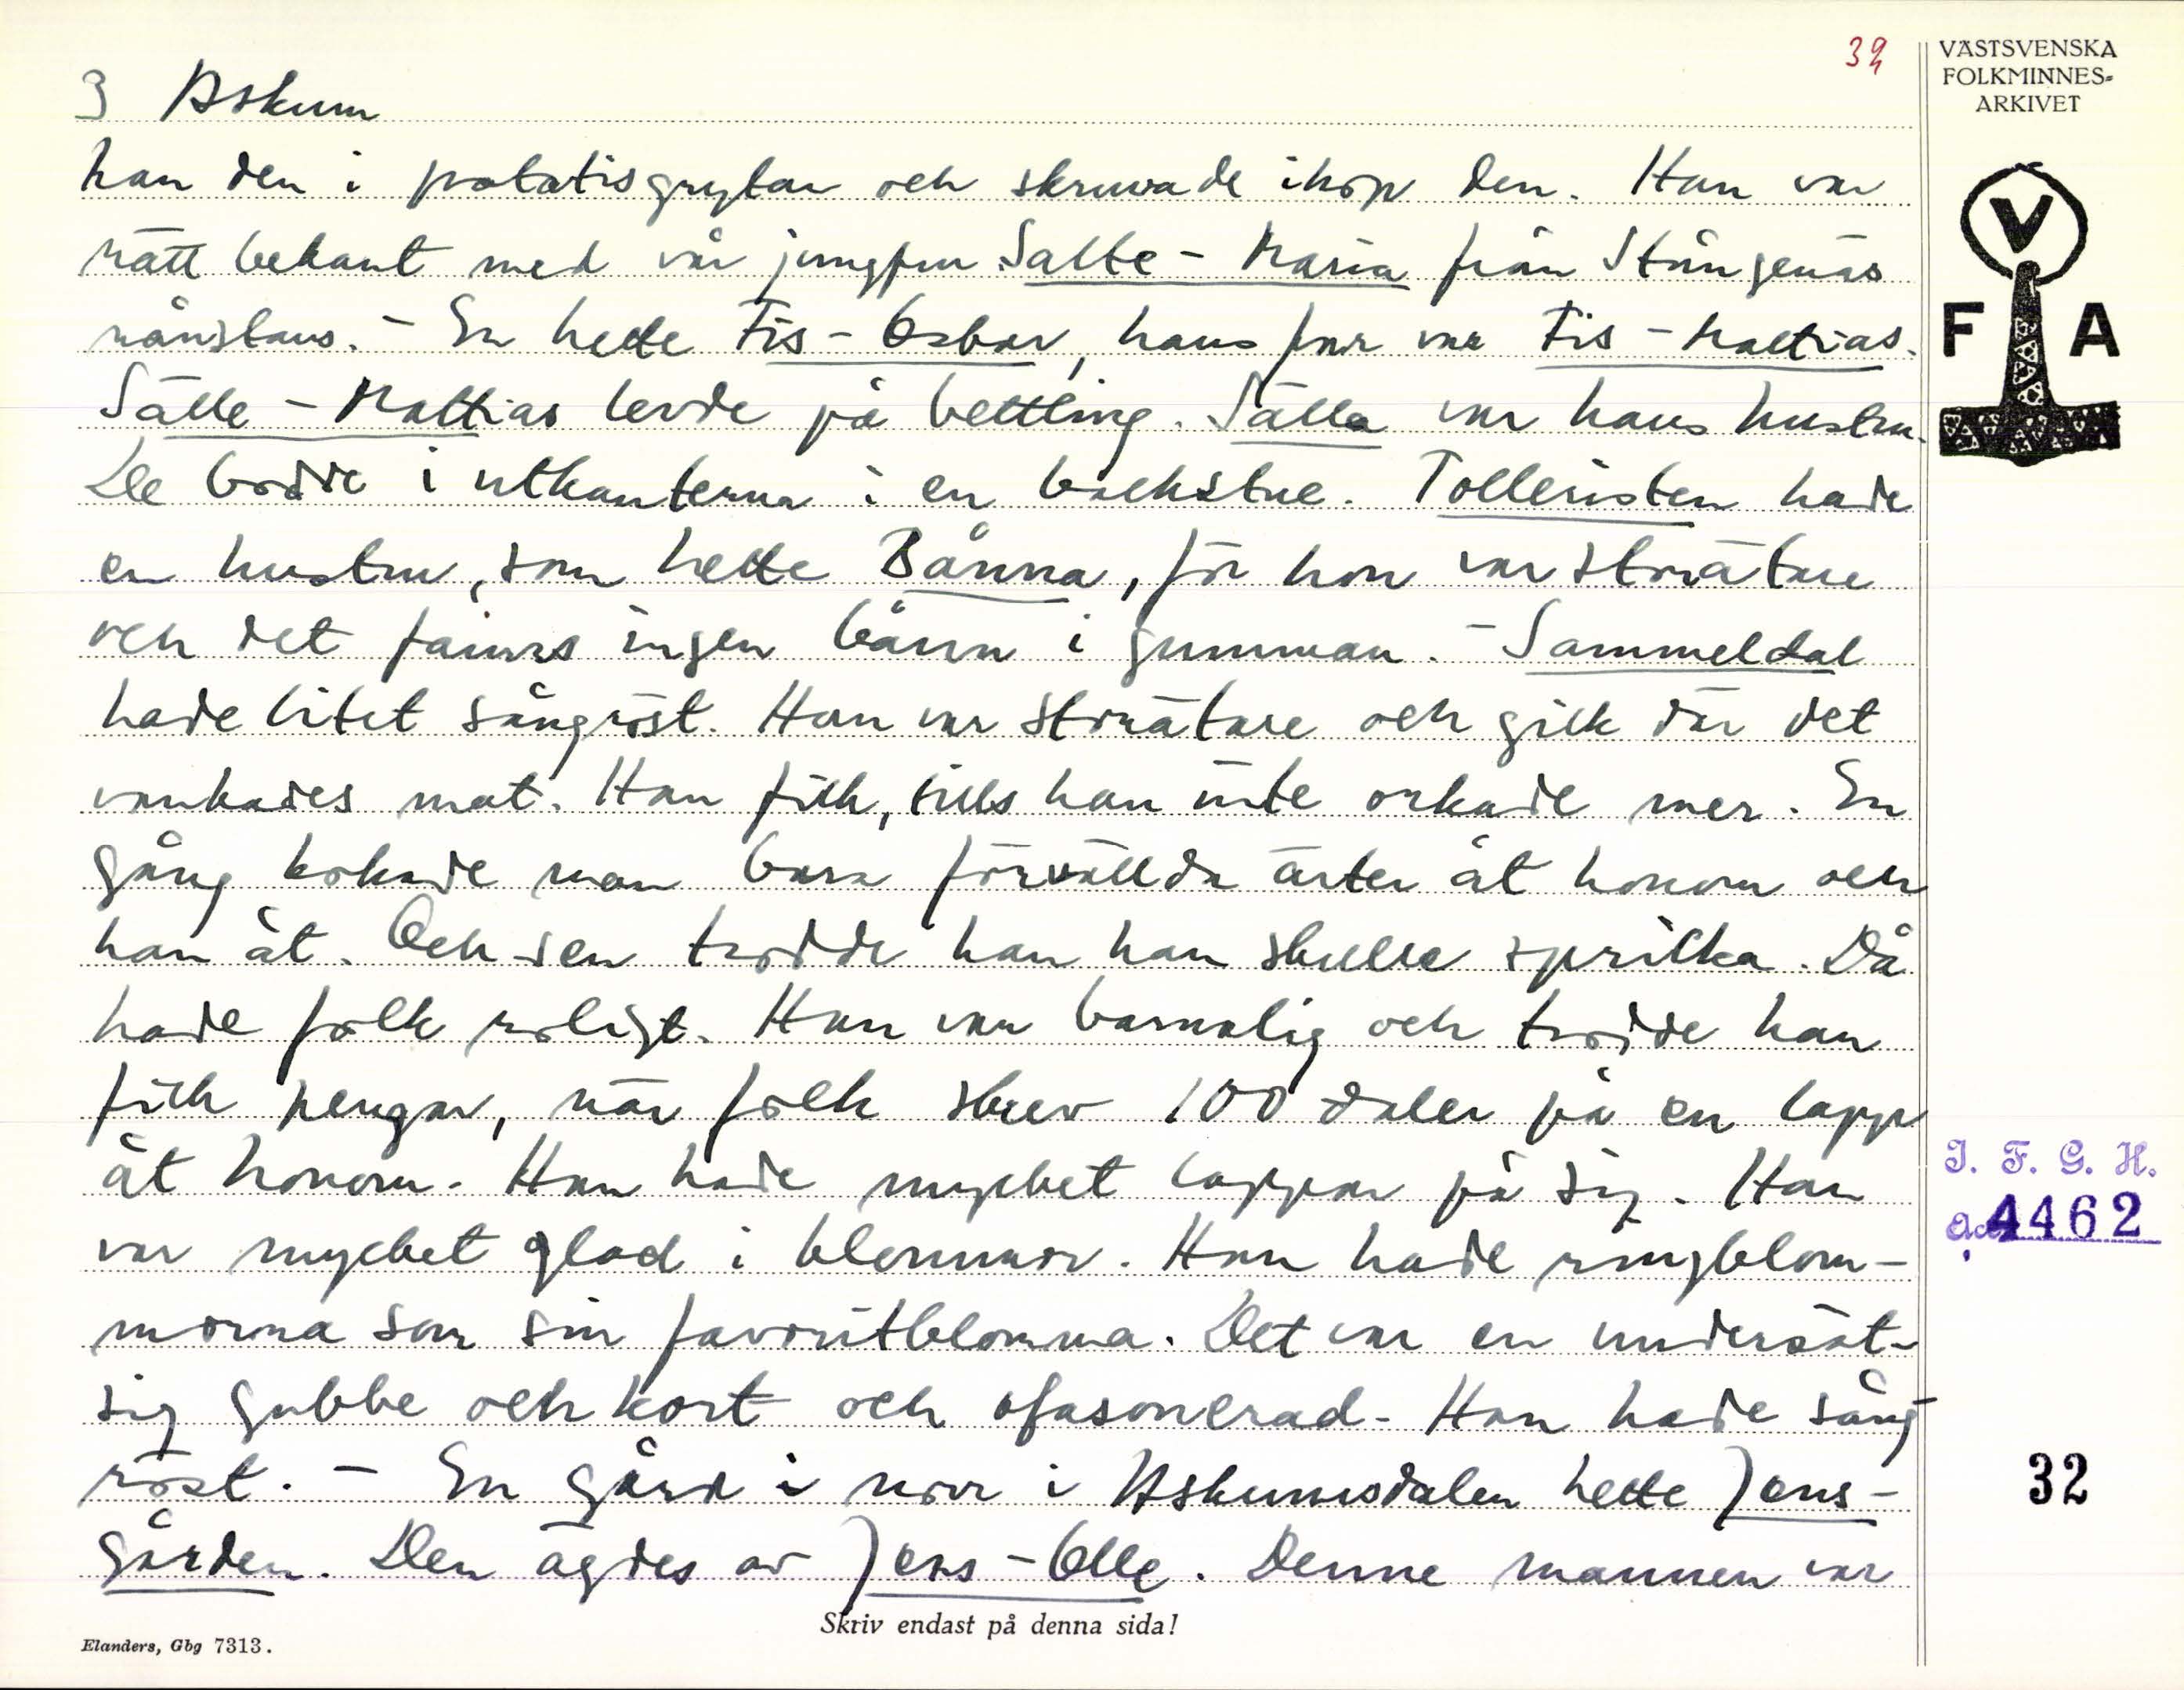 32
VÄSTSVENSKA
FOLKMINNES-
ARKIVET
3 Askum
han den i potatisgrytan och skruvade ihop den. Han var
rätt bekant med vår jungfru Salte-Maria från Stångenäs
nånstans. - En hette Fis-Oskar, hans far var Fis-Mattias.
Sälle-Mattias levde på bettling. Sälla var hans hustru.
De bodde i utkanterna i en backstue. Tolleristen hade
en hustru, som hette Bånna, för hon var storätare
och det fanns ingen bånn i gumman. - Sammeldal
hade litet sångröst. Han var storätare och gick där det
vankades mat. Han fick, tills han inte orkade mer. En
gång kokade man bara förvällda ärter åt honom och
han åt. Och sen trodde han han skulle spricka. Då
hade folk roligt. Han var barnslig och trodde han
fick pengar, när folk skrev 100 daler på en lapp
åt honom. Han hade mycket lappar på sig. Han
var mycket glad i blommor. Han hade ringblom-
morna som sin favoritblomma. Det var en undersät-
sig gubbe och kort och ofasonerad. Han hade sång
röst. - En gård i norr i Askumsdalen hette Jens-
gården. Den ägdes av Jens-Olle. Denne mannen var
V
F A
I. F. G. H.
4462
32
Skriv endast på denna sida!
Elanders, Gbg 7313.